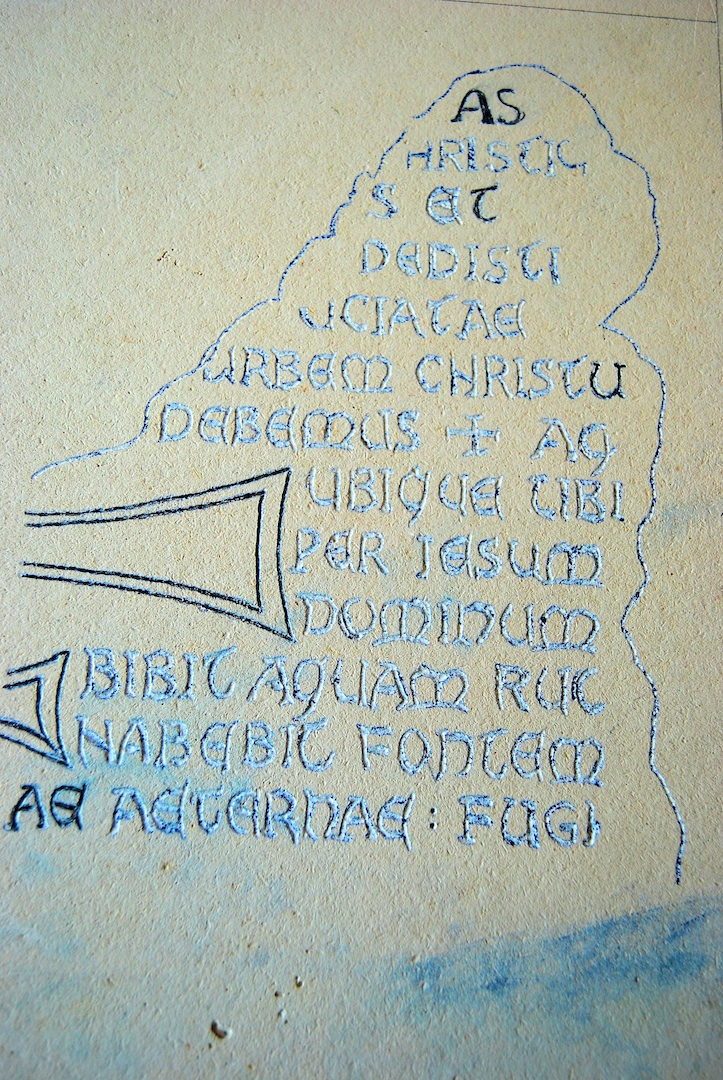 AS
HRISTIC
S ET
DEDISTI
UCIATAE
URBEM CHRISTU
DEBEMUS + AQ
UBIQUE TIBI
PER IESUM
DOMINUM
BIBIT AQUAM RUT
HABEBIT FONTEM
AE AETERNAE : FUGI